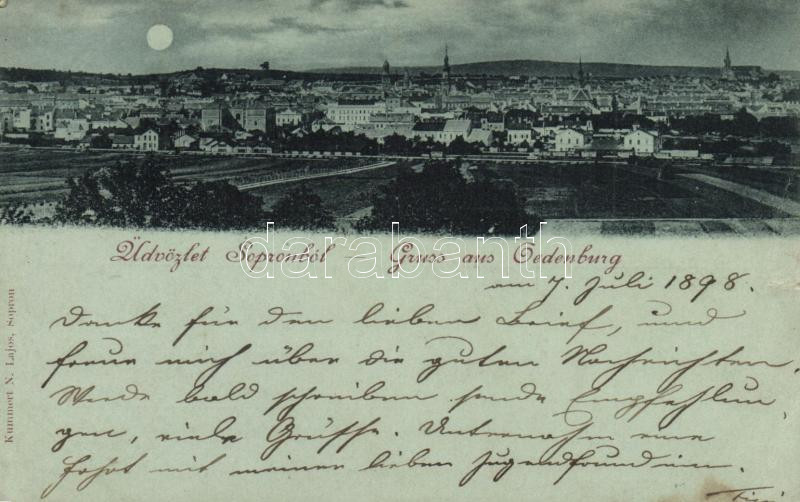 Üdvözlet Sopronból – Gruss aus Oedenburg
am 7. Juli 1898.
Danke für den lieben Brief, und
freue mich über die guten Nachrichten.
Werde bald schreiben sende Empfehlun
gen, viele Grüsse. Unternahm eine
Fahrt mit meiner lieben Jugendfreundin.
Kummert N. Lajos, Sopron
darabanth.com